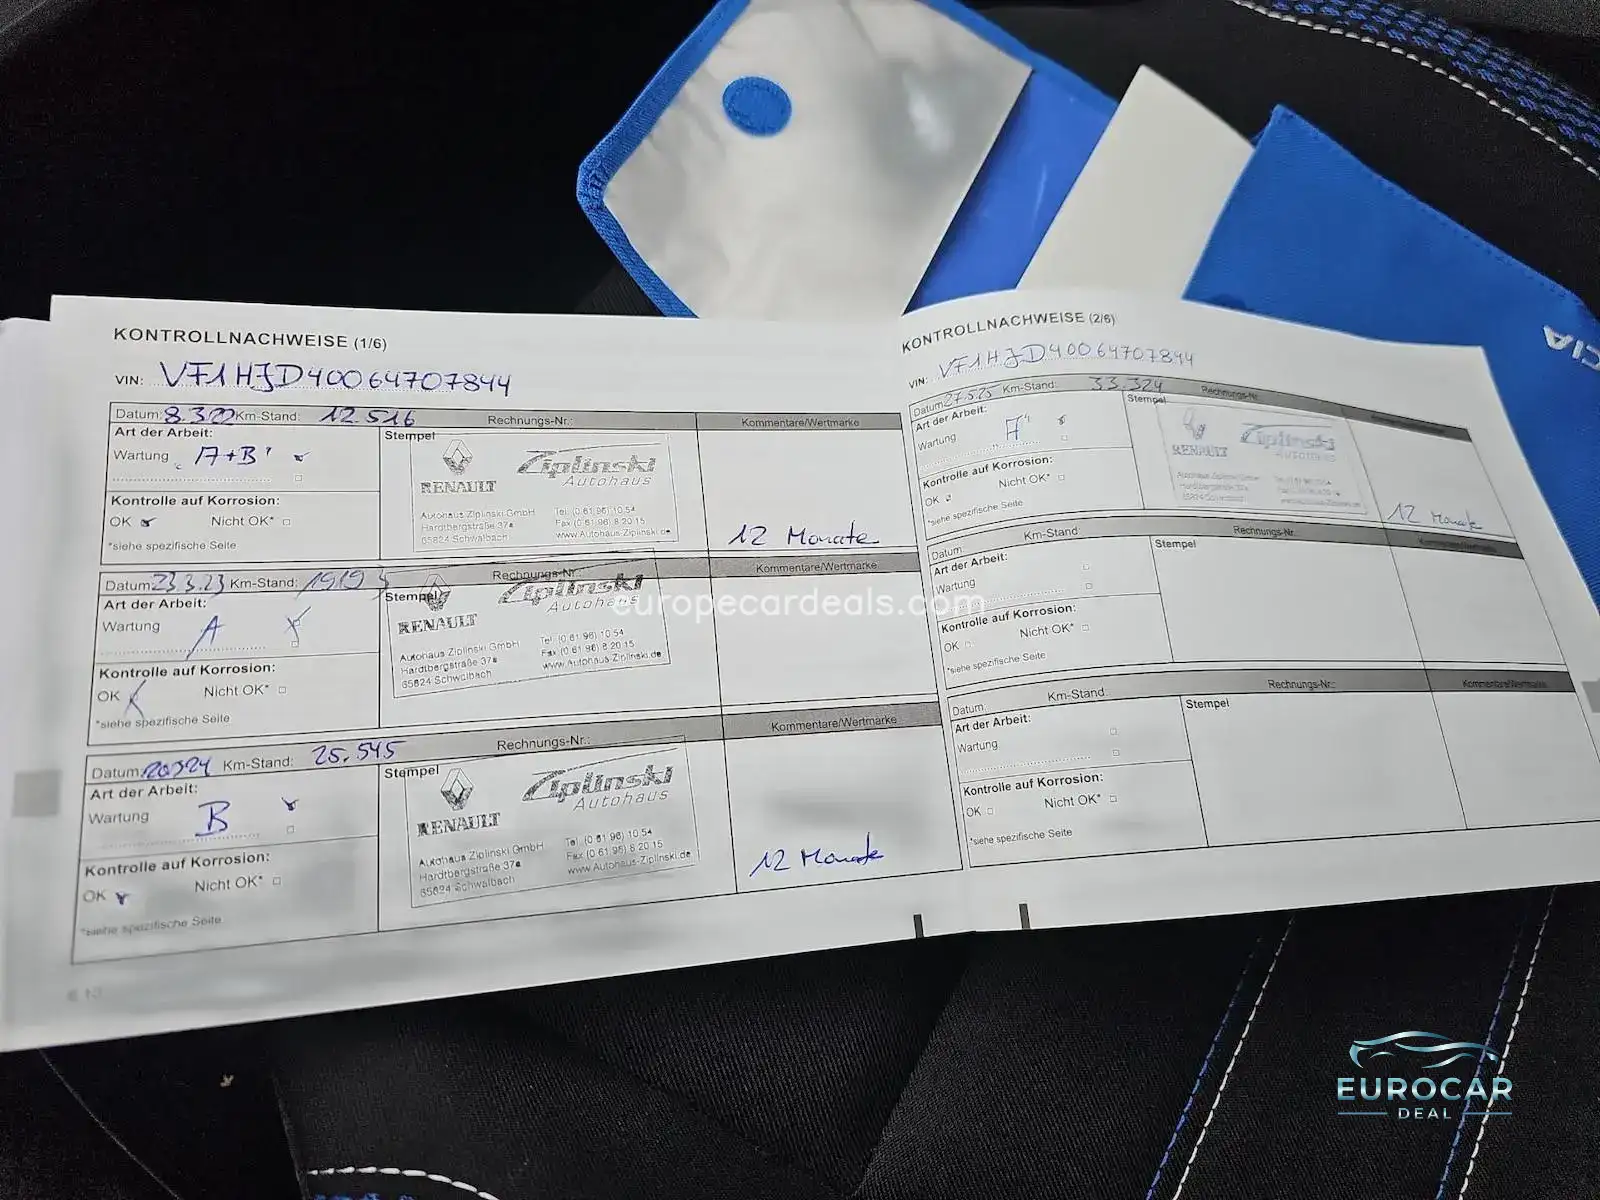 KONTROLLNACHWEISE (1/6)
VIN: VF1HJD40064707844
Datum: 8.3.22 Km-Stand: 12.516 Rechnungs-Nr.: Kommentare/Wertmarke
Art der Arbeit: Stempel
Wartung "A+B"
RENAULT Ziplinski
Autohaus
Kontrolle auf Korrosion:
OK Nicht OK*
*siehe spezifische Seite
Autohaus Ziplinski GmbH Tel. (0 61 96) 10 54
Hardtbergstraße 37a Fax (0 61 96) 8 20 15
65824 Schwalbach www.Autohaus-Ziplinski.de
12 Monate
Datum: 23.3.23 Km-Stand: Rechnungs-Nr.: Kommentare/Wertmarke
Art der Arbeit: Stempel
Wartung A
RENAULT Ziplinski
Autohaus
Kontrolle auf Korrosion:
OK Nicht OK*
*siehe spezifische Seite
Autohaus Ziplinski GmbH Tel. (0 61 96) 10 54
Hardtbergstraße 37a Fax (0 61 96) 8 20 15
65824 Schwalbach www.Autohaus-Ziplinski.de
Datum: Km-Stand: 25.545 Rechnungs-Nr.: Kommentare/Wertmarke
Art der Arbeit: Stempel
Wartung B
RENAULT Ziplinski
Autohaus
Kontrolle auf Korrosion:
OK Nicht OK*
*siehe spezifische Seite
Autohaus Ziplinski GmbH Tel. (0 61 96) 10 54
Hardtbergstraße 37a Fax (0 61 96) 8 20 15
65824 Schwalbach www.Autohaus-Ziplinski.de
12 Monate
KONTROLLNACHWEISE (2/6)
VIN: VF1HJD40064707844
Datum: 27.5.25 Km-Stand: 33.324 Rechnungs-Nr.
Art der Arbeit: Stempel
Wartung "A"
RENAULT Ziplinski
Autohaus
Kontrolle auf Korrosion:
OK Nicht OK*
*siehe spezifische Seite
12 Monate
Datum: Km-Stand: Rechnungs-Nr.: Kommentare/Wertmarke
Art der Arbeit: Stempel
Wartung
Kontrolle auf Korrosion:
OK Nicht OK*
*siehe spezifische Seite
Datum: Km-Stand: Rechnungs-Nr.: Kommentare/Wertmarke
Art der Arbeit: Stempel
Wartung
Kontrolle auf Korrosion:
OK Nicht OK*
*siehe spezifische Seite
europecardeals.com
EUROCAR
DEAL